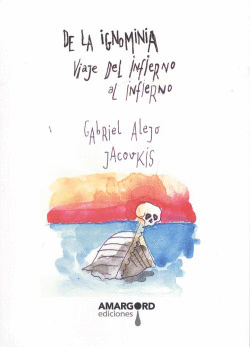 DE LA IGNOMINIA
Viaje Del infierno
al infierno
Gabriel Alejo
JACOVKIS
AMARGORD
ediciones